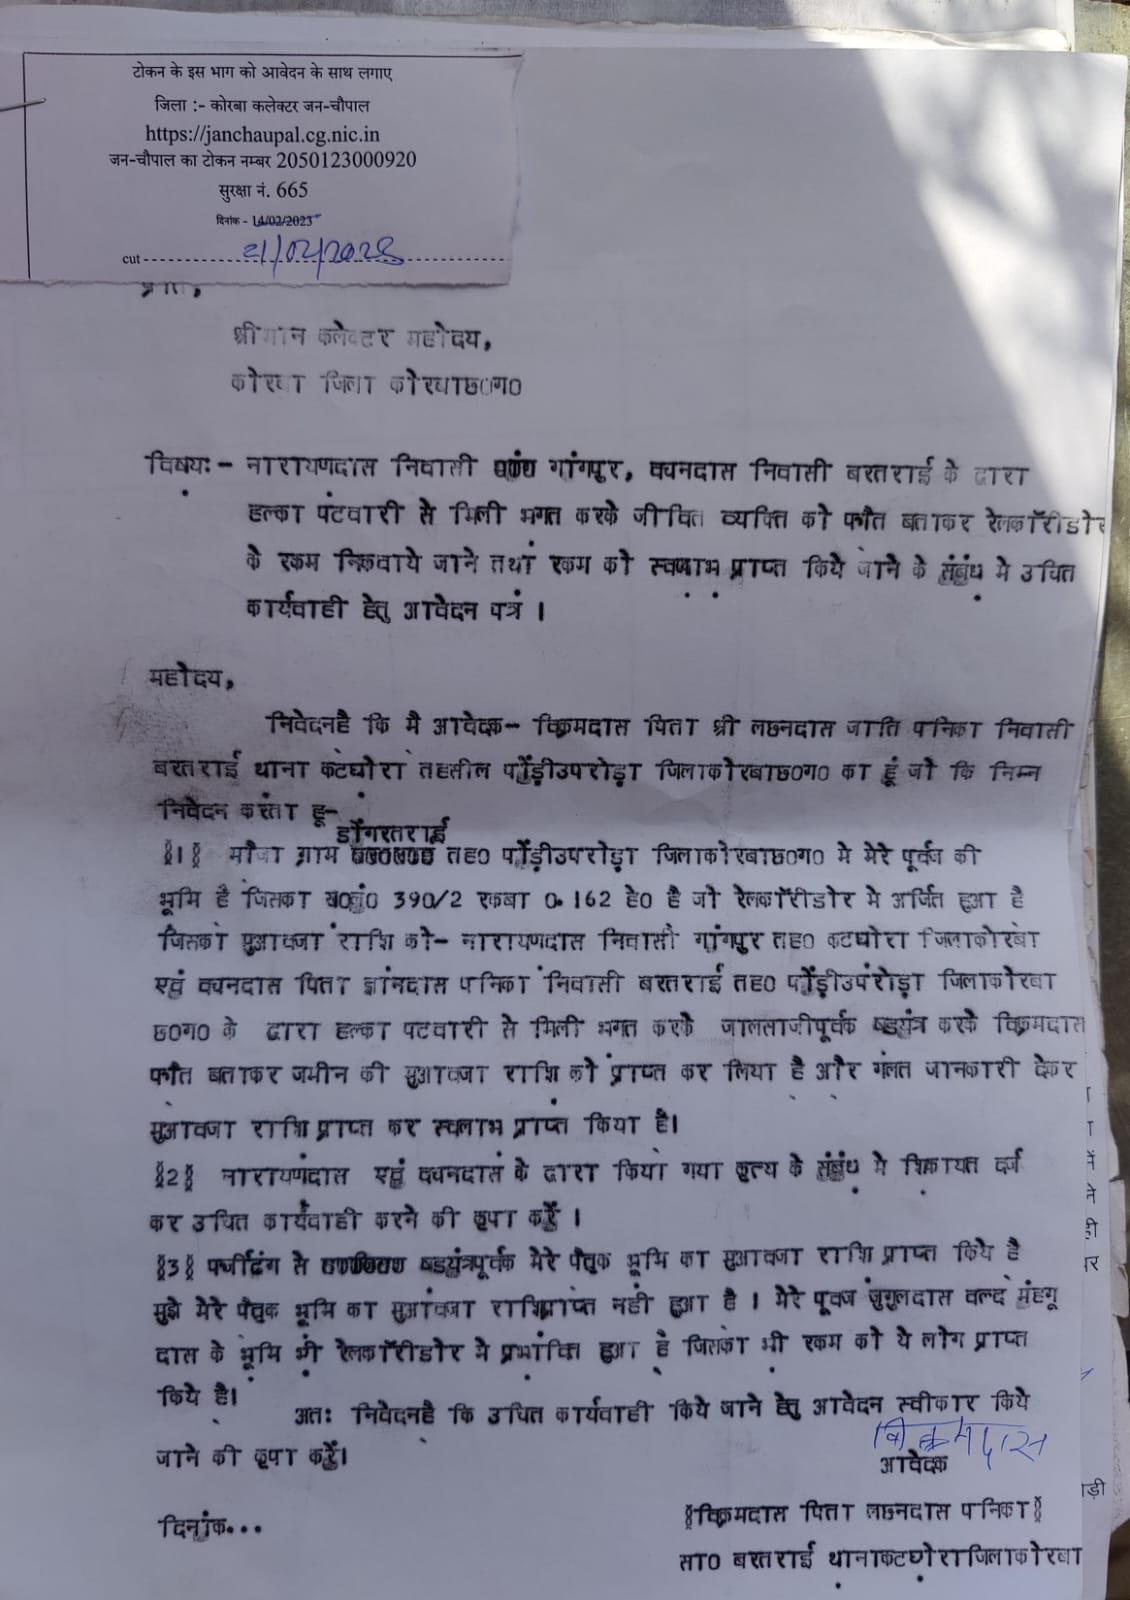 टोकन के इस भाग को आवेदन के साथ लगाए
जिला :- कोरबा कलेक्टर जन-चौपाल
https://janchaupal.cg.nic.in
जन-चौपाल का टोकन नम्बर 2050123000920
सुरक्षा नं. 665
दिनांक - 14/02/2023
cut
21/02/2023
प्रति,
श्रीमान कलेक्टर महोदय,
कोरबा जिला कोरबाछ०ग०
विषय:- नारायणदास निवासी गांगपुर, वचनदास निवासी बरतराई के द्वारा
हल्का पटवारी से मिली भगत करके जीवित व्यक्ति को फौत बताकर रेलकॉरीडोर
के रकम निकवाये जाने तथां रकम को स्वलाभ प्राप्त किये जाने के संबंध मे उचित
कार्यवाही हेतु आवेदन पत्र ।
महोदय,
निवेदनहै कि मै आवेदक- विक्रमदास पिता श्री लछनदास जाति पनिका निवासी
बरतराई थाना कटघोरा तहसील पोंड़ीउपरोड़ा जिलाकोरबाछ०ग० का हूं जो कि निम्न
निवेदन करता हू-
डोंगरतराई
§1§ मौजा ग्राम तह० पोंड़ीउपरोड़ा जिलाकोरबाछ०ग० मे मेरे पूर्वज की
भूमि है जिसका ख०नं० 390/2 रकबा 0.162 हे० है जो रेलकॉरीडोर मे अर्जित हुआ है
जिसका मुआवजा राशि को- नारायणदास निवासी गांगपुर तह० कटघोरा जिलाकोरबा
एवं वचनदास पिता ज्ञानदास पनिका निवासी बरतराई तह० पोंड़ीउपरोड़ा जिलाकोरबा
छ०ग० के द्वारा हल्का पटवारी से मिली भगत करके जालसाजीपूर्वक षडयंत्र करके विक्रमदास
फौत बताकर जमीन की मुआवजा राशि को प्राप्त कर लिया है और गलत जानकारी देकर
मुआवजा राशि प्राप्त कर स्वलाभ प्राप्त किया है।
§2§ नारायणदास एवं वचनदास के द्वारा किया गया कृत्य के संबंध मे शिकायत दर्ज
कर उचित कार्यवाही करने की कृपा करें ।
§3§ फर्जीढंग से षडयंत्रपूर्वक मेरे पैतृक भूमि का मुआवजा राशि प्राप्त किये है
मुझे मेरे पैतृक भूमि का मुआवजा राशिप्राप्त नही हुआ है । मेरे पूर्वज जुगुलदास वल्द मंहगू
दास के भूमि भी रेलकॉरीडोर मे प्रभावित हुआ है जिसका भी रकम को ये लोग प्राप्त
किये है।
अत: निवेदनहै कि उचित कार्यवाही किये जाने हेतु आवेदन स्वीकार किये
जाने की कृपा करें।
विक्रमदास
आवेदक
§विक्रमदास पिता लछनदास पनिका§
दिनांक...
सा० बरतराई थानाकटघोराजिलाकोरबा